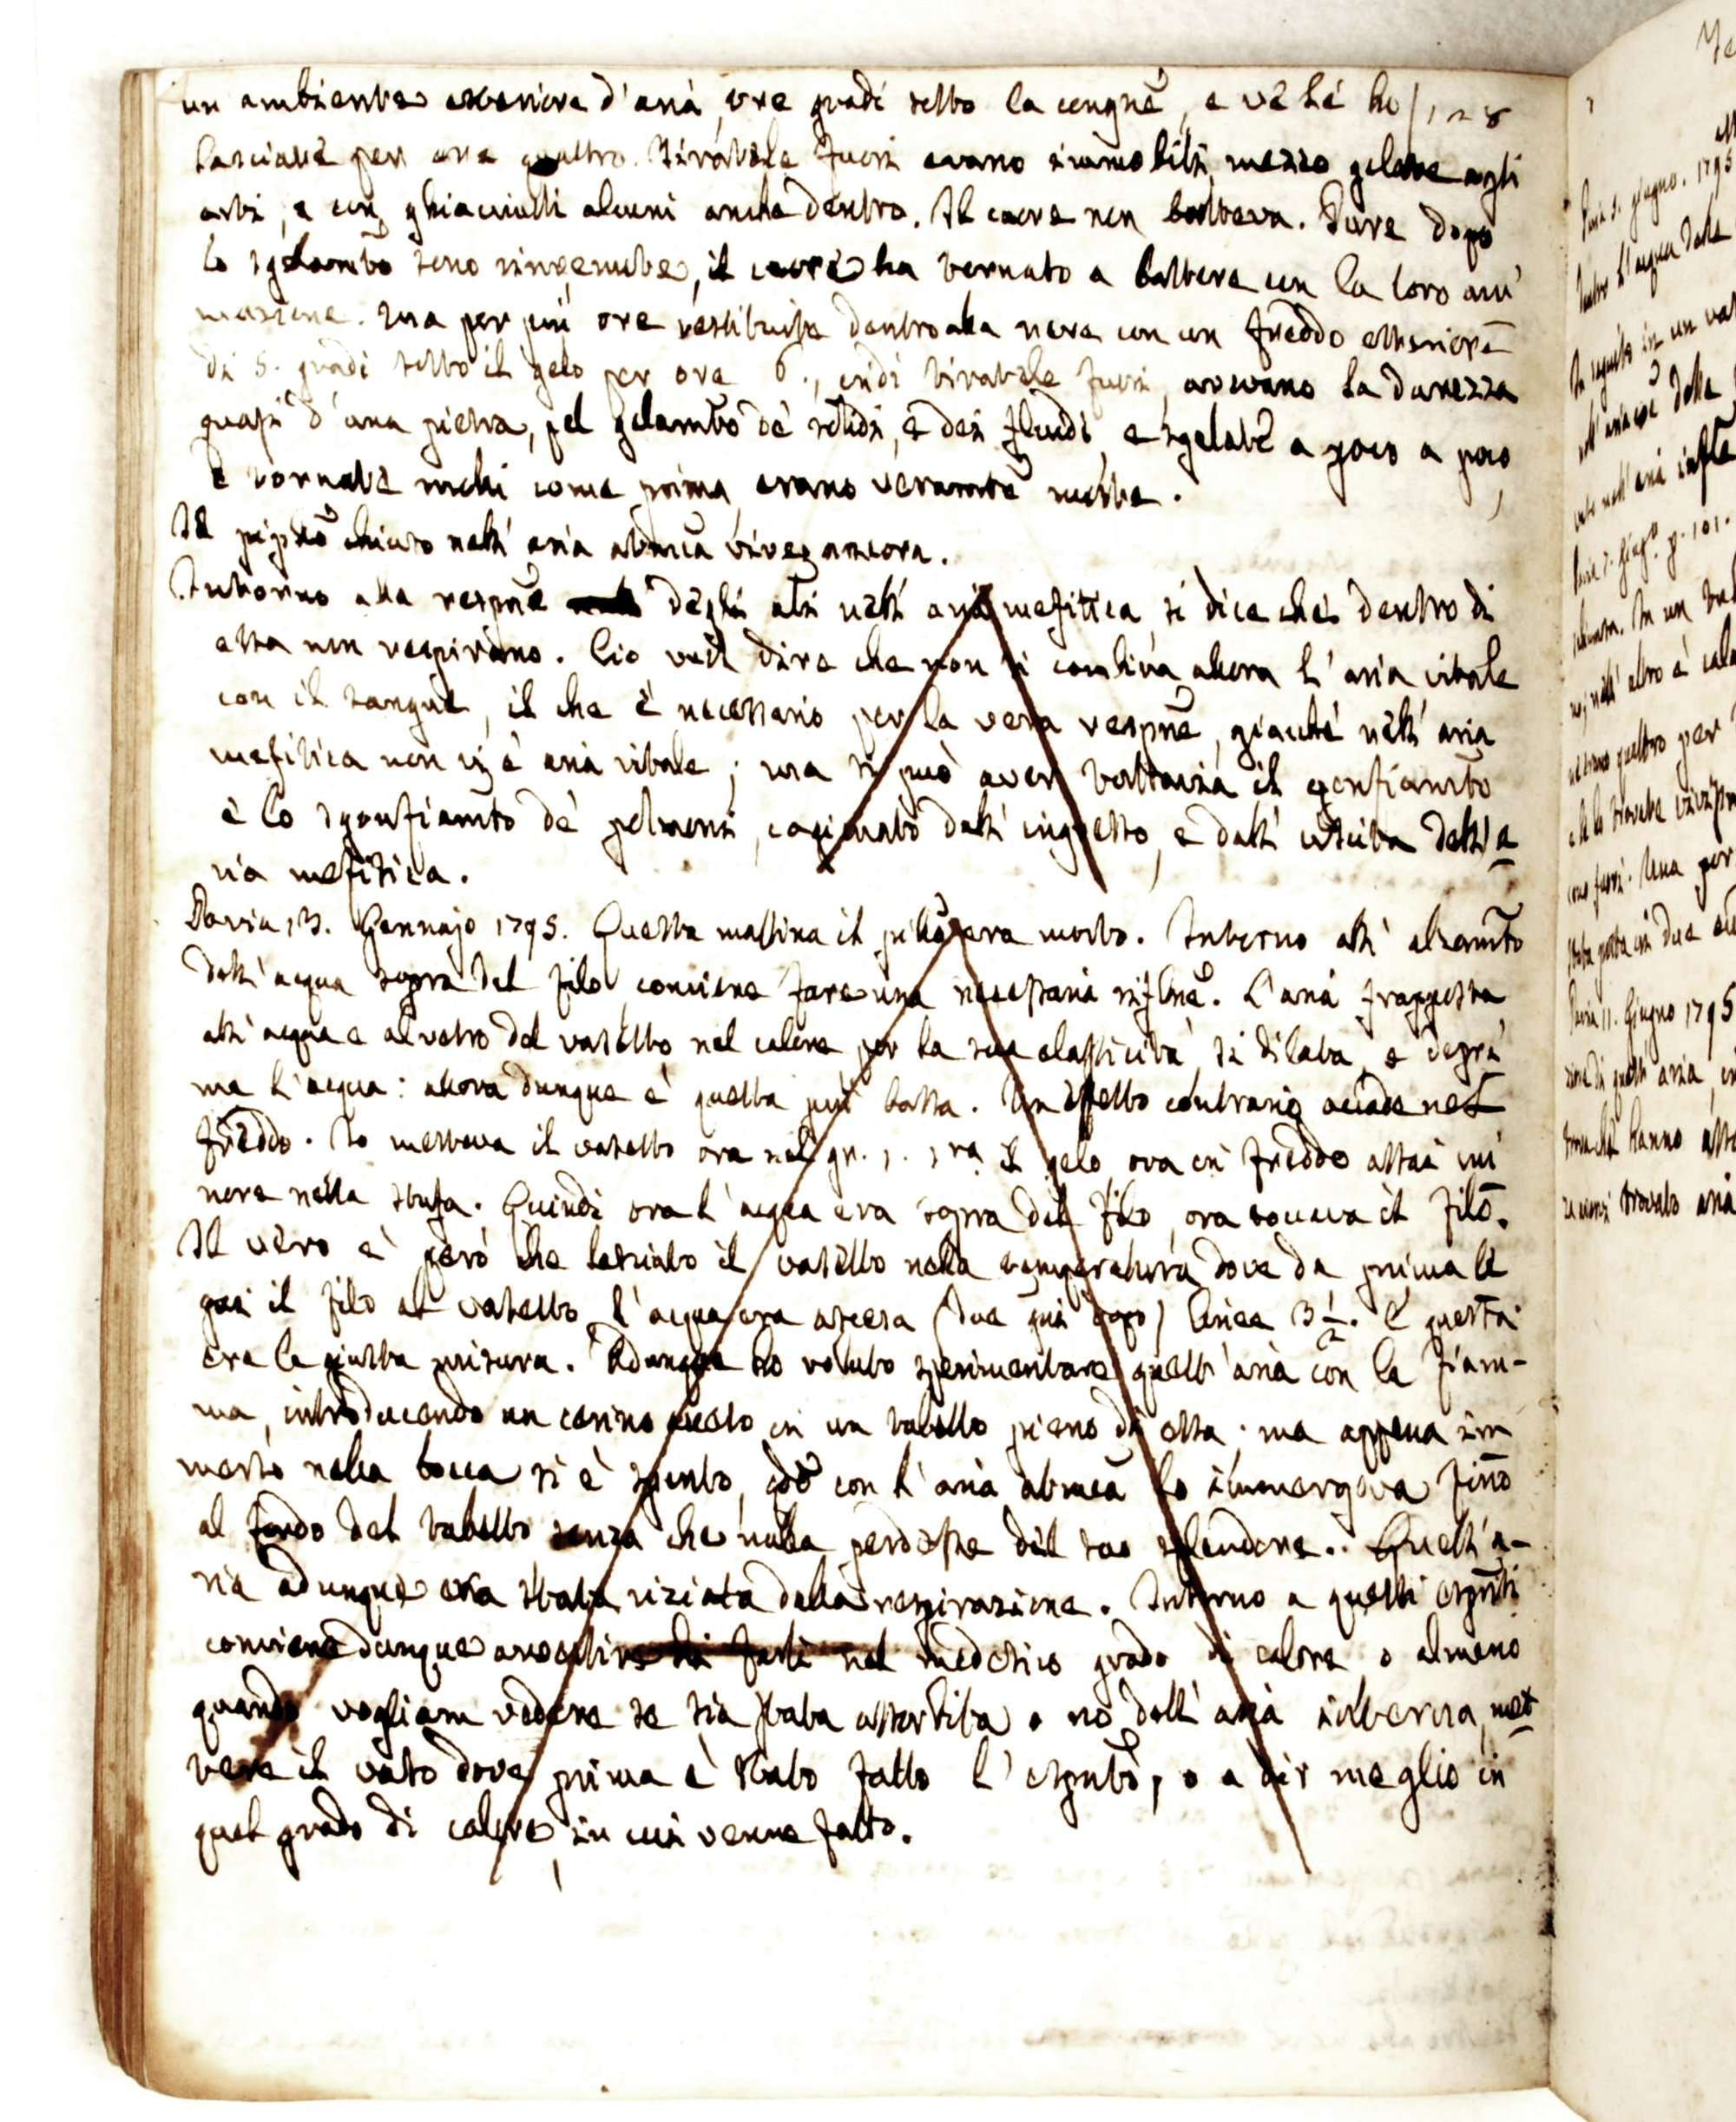 un ambiente esteriore d'aria, tre gradi sotto la congne, e ve le ho / 128
lasciate per ore quattro. Tiratele fuori erano immobili, mezzo gelate negli
arti, e con ghiacciuoli alcuni anche dentro. Il cuore non batteva. Pure dopo
lo sgelamto sono rinvenute, il cuore ha tornato a battere con la loro ani
mazione. Ma per più ore restituite dentro alla neve con un freddo esteriore
di 5. gradi sotto il gelo per ore 6., indi tiratele fuori, avevano la durezza
quasi d'una pietra, pel gelamto de' solidi, e dei fluidi, e sgelate a poco a poco,
e tornate molli come prima, erano veramte morte.
Il pipistrō chiuso nell'aria atmica vive ancora.
Intorno alla respne degli altri nell'aria mefitica, si dice che dentro di
essa non respirano. Ciò vuol dire che non si combina allora l'aria vitale
con il sangue, il che è necessario per la vera respne, giacchè nell'aria
mefitica non vi è aria vitale; ma si può aver tuttavia il gonfiamto
e lo sgonfiamto de' polmoni, cagionato dall'ingresso, e dall'uscita dell'a
ria mefitica.
Pavia 13. Gennajo 1795. Questa mattina il era morto. Intorno all'alzamto
dell'acqua sopra del filo conviene fare una necessaria riflne. L'aria frapposta
all'acqua e al vetro del vasetto nel calore per la sua elasticità si dilata, e depri
me l'acqua: allora dunque è questa più bassa. Un effetto contrario accade nel
freddo. Io metteva il vasetto ora nel gr. 1. sra il gelo, ora in freddo assai mi
nore nella stufa. Quindi ora l'acqua era sopra del filo, ora toccava il filo.
Il vero è però che lasciato il vasetto nella temperatura dove da prima le
gai il filo al vasetto, l'acqua era ascesa (due giri dopo) linee 3 1/2. E questa
era la giusta misura. Adunque ho voluto sperimentare quell'aria con la fiam-
ma, introducendo un cerino acceso in un tubetto pieno di essa; ma appena im
merso nella bocca si è spento, qdo con l'aria atmica lo immergeva fino
al fondo del tubetto senza che nulla perdesse del suo splendore.. Quell'a-
ria adunque era stata viziata dalla respirazione. Intorno a questi esprti
conviene dunque avvertire di farli nel medesimo grado di calore, o almeno
quando vogliam vedere se sia stata assorbita o no dell'aria interna, met
tere il vaso dove prima è stato fatto l'esprto, o a dir meglio in
quel grado di calore, in cui venne fatto.